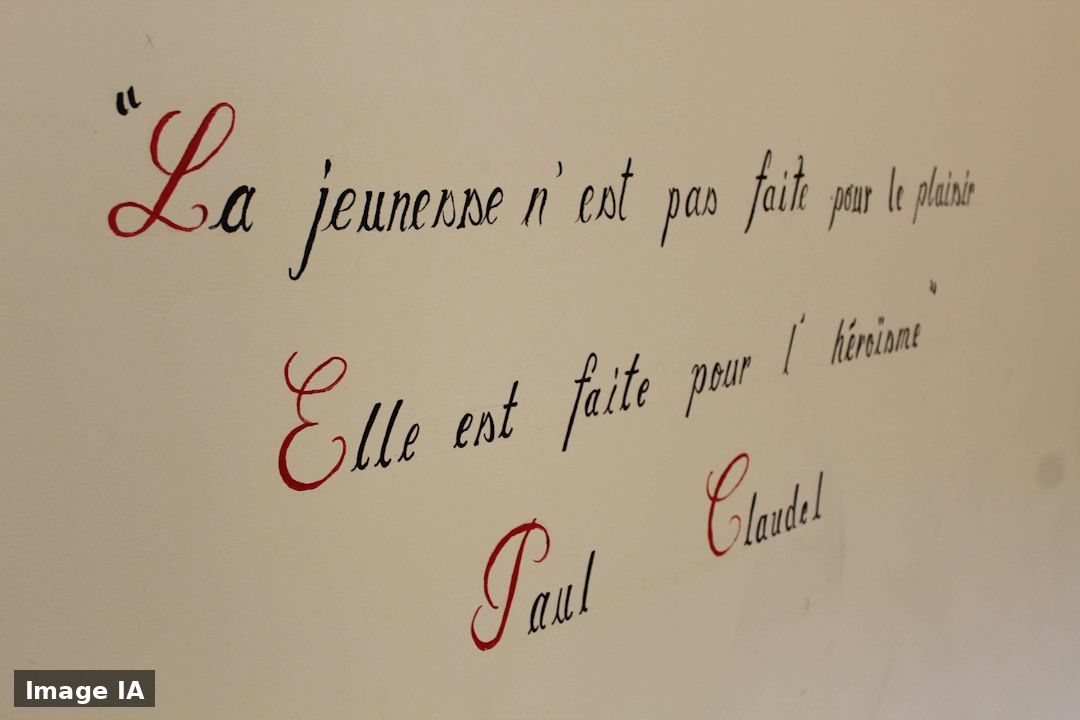 "La jeunesse n'est pas faite pour le plaisir
Elle est faite pour l'héroïsme"
Paul Claudel
Image IA